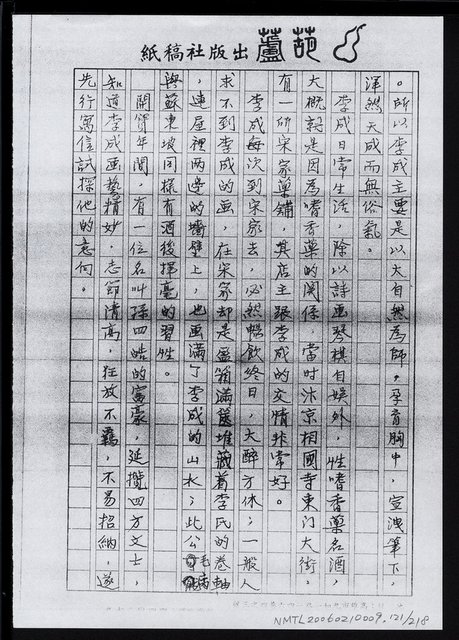 葫蘆出版社稿紙
。所以李成主要是以大自然為師，孕育胸中，宣洩筆下，
渾然天成而無俗氣。
李成日常生活，除以詩画琴棋自娛外，性嗜香藥名酒，
大概就是因為嗜香藥的関係，當时汴京相國寺東门大街，
有一所宋家藥舖，其店主跟李成的交情非常好。
李成每次到宋家去，必然暢飲終日，大醉方休；一般人
求不到李成的画，在宋家却是盈箱滿篋堆藏着李氏的卷軸
，連屋裡兩邊的墻壁上，也画滿了李成的山水；此公毛病
與蘇東坡同樣有酒後揮毫的習性。
開寶年間，有一位名叫孫四皓的富豪，延攬四方文士，
知道李成画藝精妙，志節清高，狂放不羈，不易招納，遂
先行寫信試探他的意向。
NMTL20060210009.121/218